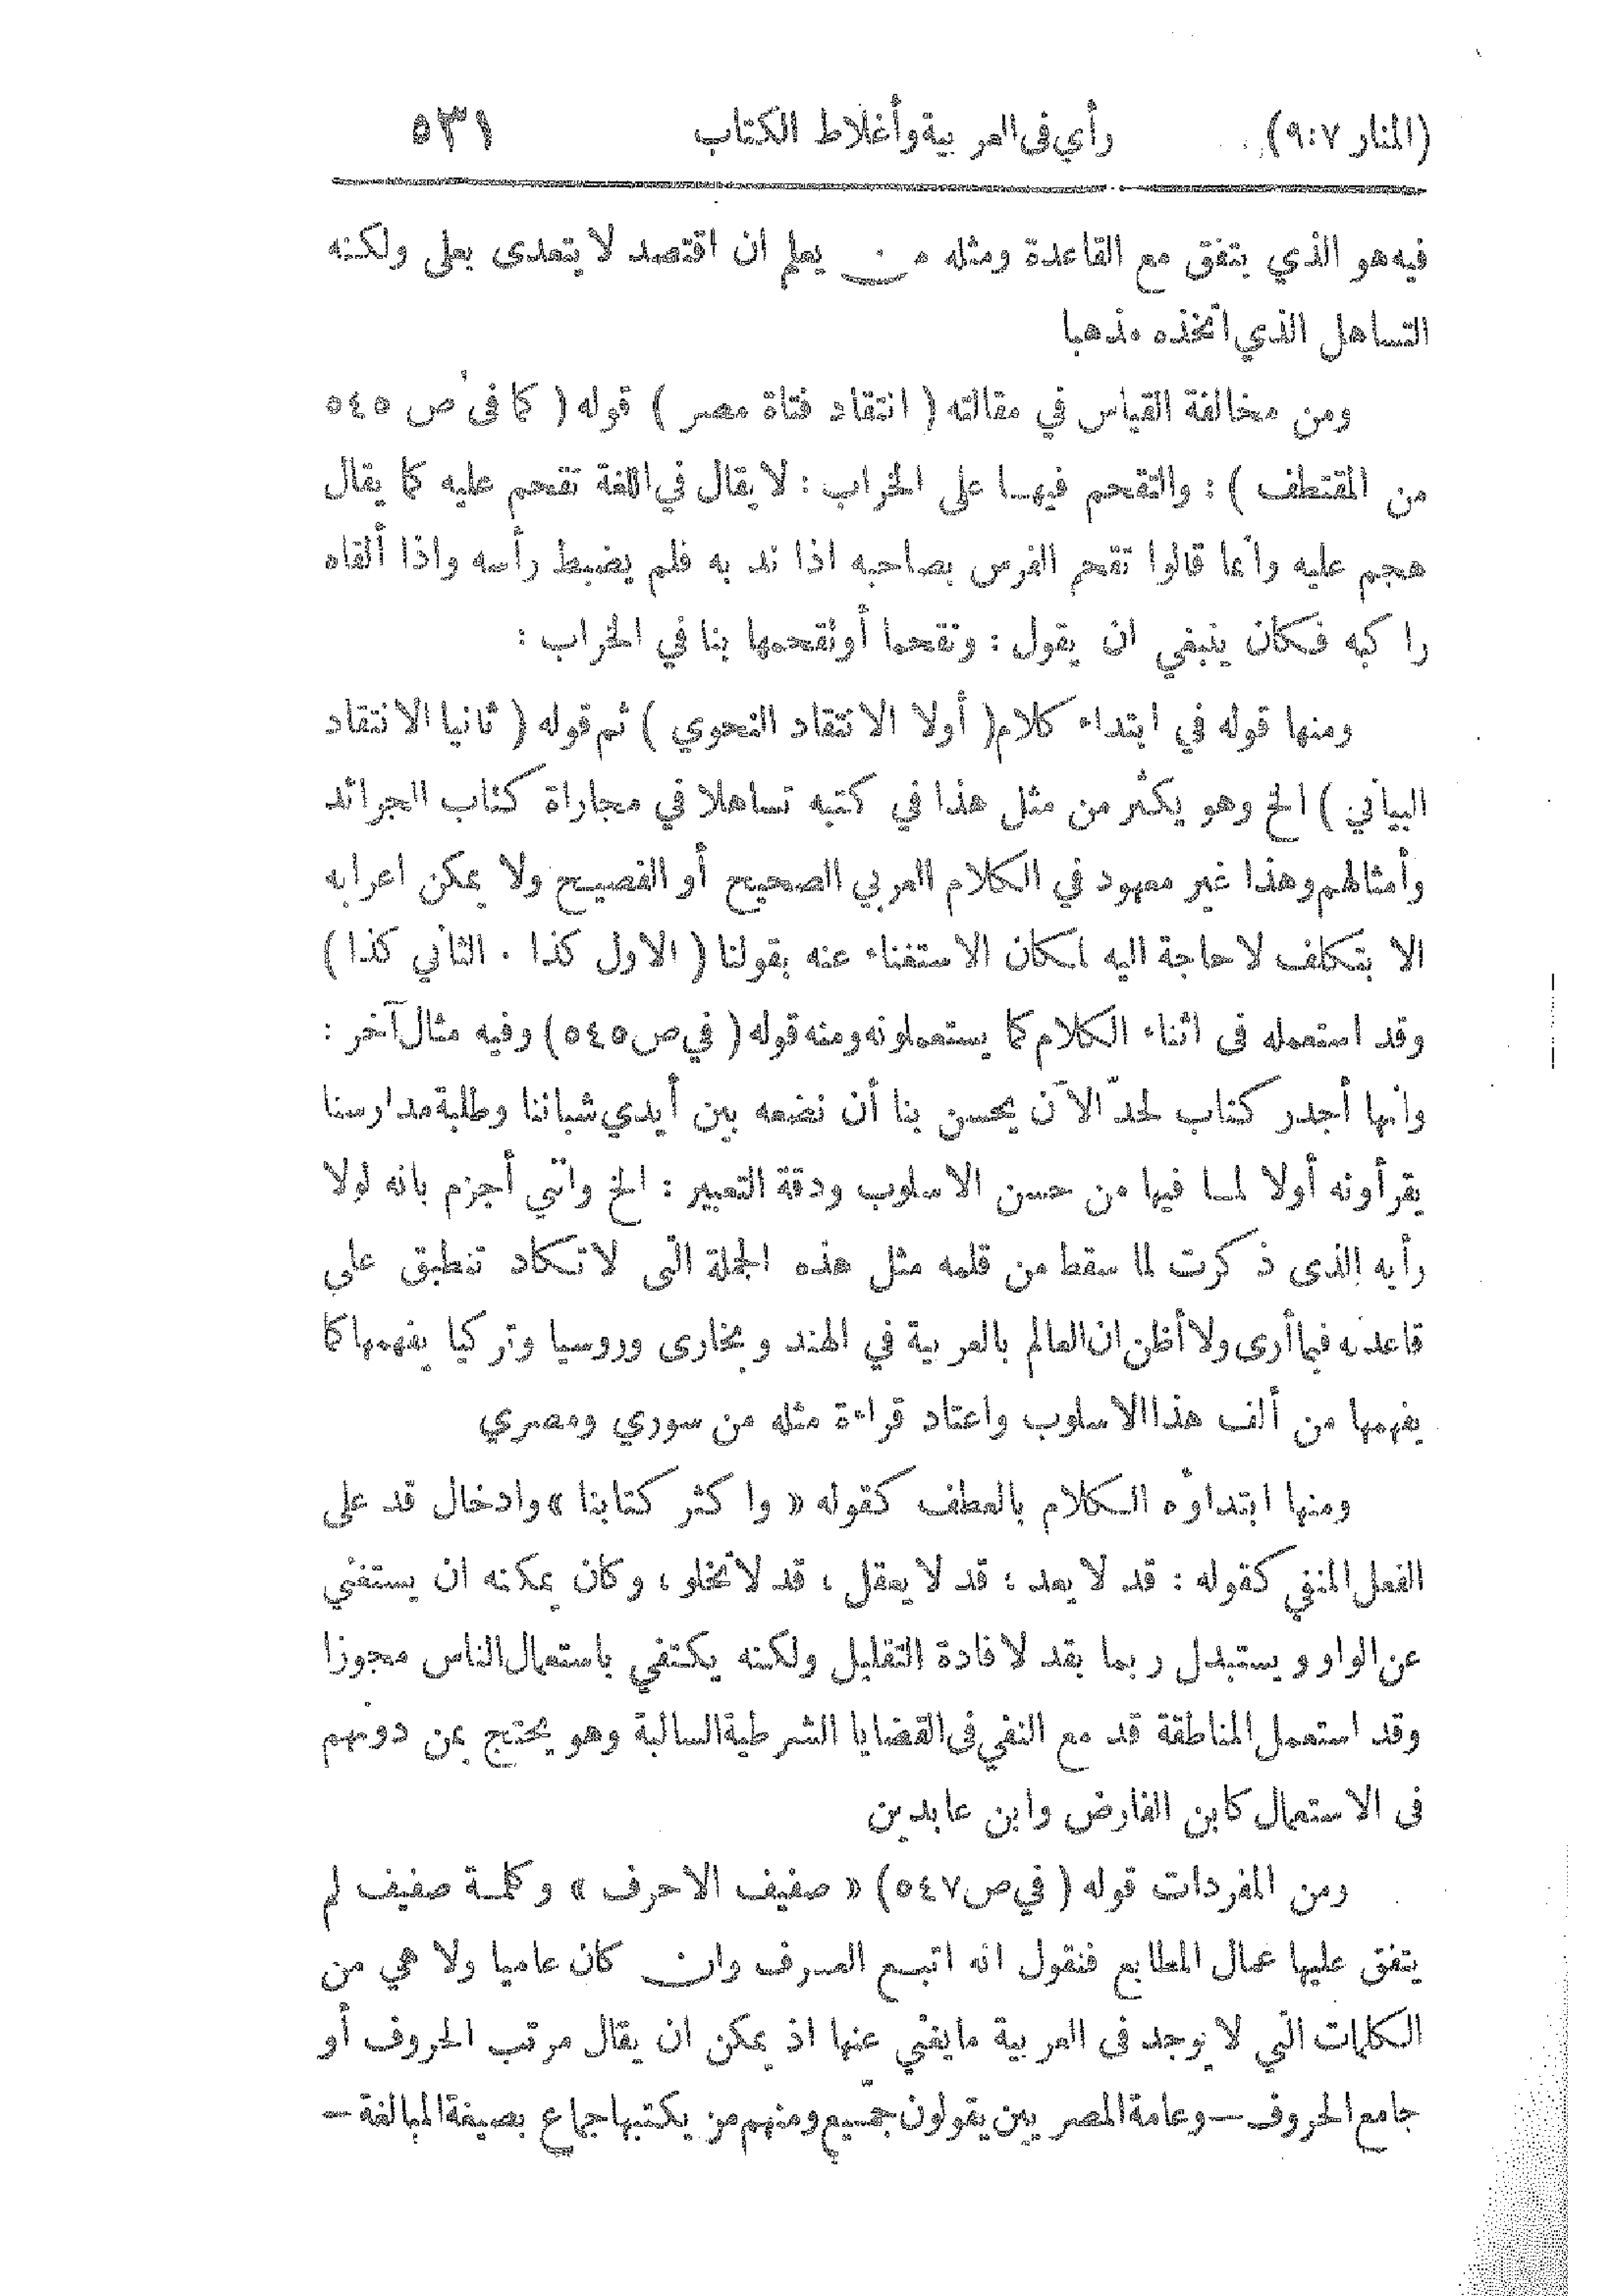 (المنار ٩:٧) رأي في العربية وأغلاط الكتاب ٥٣١
فيه هو الذي يتفق مع القاعدة ومثله من يعلم ان اقتصد لا يتعدى بعلى ولكنه
التساهل الذي اتخذه مذهبا
ومن مخالفة القياس في مقالته ( انتقاد فتاة مصر ) قوله ( كما في ص ٥٤٥
من المقتطف ) : والتقحم فيها على الخراب : لا يقال في اللغة تقحم عليه كما يقال
هجم عليه وانما قالوا تقحم الفرس بصاحبه اذا ند به فلم يضبط رأسه واذا ألقاه
راكبه فكان ينبغي ان يقول : وتقحما أو تقحمها بنا في الخراب :
ومنها قوله في ابتداء كلام ( أولا الانتقاد النحوي ) ثم قوله ( ثانيا الانتقاد
البياني ) الخ وهو يكثر من مثل هذا في كتبه تساهلا في مجاراة كتاب الجرائد
وأمثالهم وهذا غير معهود في الكلام العربي الصحيح أو الفصيح ولا يمكن اعرابه
الا بتكلف لا حاجة اليه لمكان الاستغناء عنه بقولنا ( الاول كذا . الثاني كذا )
وقد استعمله في اثناء الكلام كما يستعملونه ومنه قوله ( في ص ٥٤٥ ) وفيه مثال آخر :
وانها أجدر كتاب لحدّ الآن يحسن بنا أن نضعه بين أيدي شباننا وطلبة مدارسنا
يقرأونه أولا لما فيها من حسن الاسلوب ودقة التعبير : الخ وانني أجزم بانه لولا
رأيه الذى ذكرت لما سقط من قلمه مثل هذه الجملة التى لا تكاد تنطبق على
قاعدته فيما أرى ولا أظن ان العالم بالعربية في الهند وبخارى وروسيا وتركيا يفهمها كما
يفهمها من ألف هذا الاسلوب واعتاد قراءة مثله من سوري ومصري
ومنها ابتداؤه الكلام بالعطف كقوله « واكثر كتابنا » وادخال قد على
الفعل المنفي كقوله : قد لا يعد ؛ قد لا يعقل ، قد لا تخلو ، وكان يمكنه ان يستغني
عن الواو ويستبدل ربما بقد لافادة التقليل ولكنه يكتفي باستعمال الناس مجوزا
وقد استعمل المناطقة قد مع النفي فى القضايا الشرطية السالبة وهو يحتج بمن دونهم
فى الاستعمال كابن الفارض وابن عابدين
ومن المفردات قوله ( في ص ٥٤٧ ) « صفيف الاحرف » وكلمة صفيف لم
يتفق عليها عمال المطابع فنقول انه اتبع العرف وان كان عاميا ولا هي من
الكلمات التي لا يوجد فى العربية ما يغني عنها اذ يمكن ان يقال مرتب الحروف أو
جامع الحروف — وعامة المصريين يقولون جمّيع ومنهم من يكتبها جماع بصيغة المبالغة —